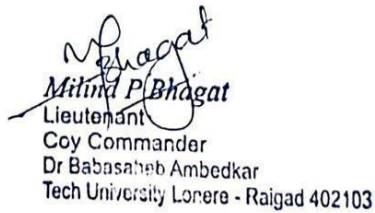 Bhagat
Milind P Bhagat
Lieutenant
Coy Commander
Dr Babasaheb Ambedkar
Tech University Lonere - Raigad 402103